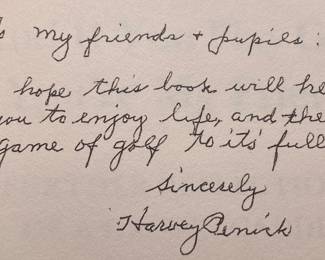 my friends + pupils :
hope this book will he
you to enjoy life, and the
game of golf to it's full
Sincerely
Harvey Penick